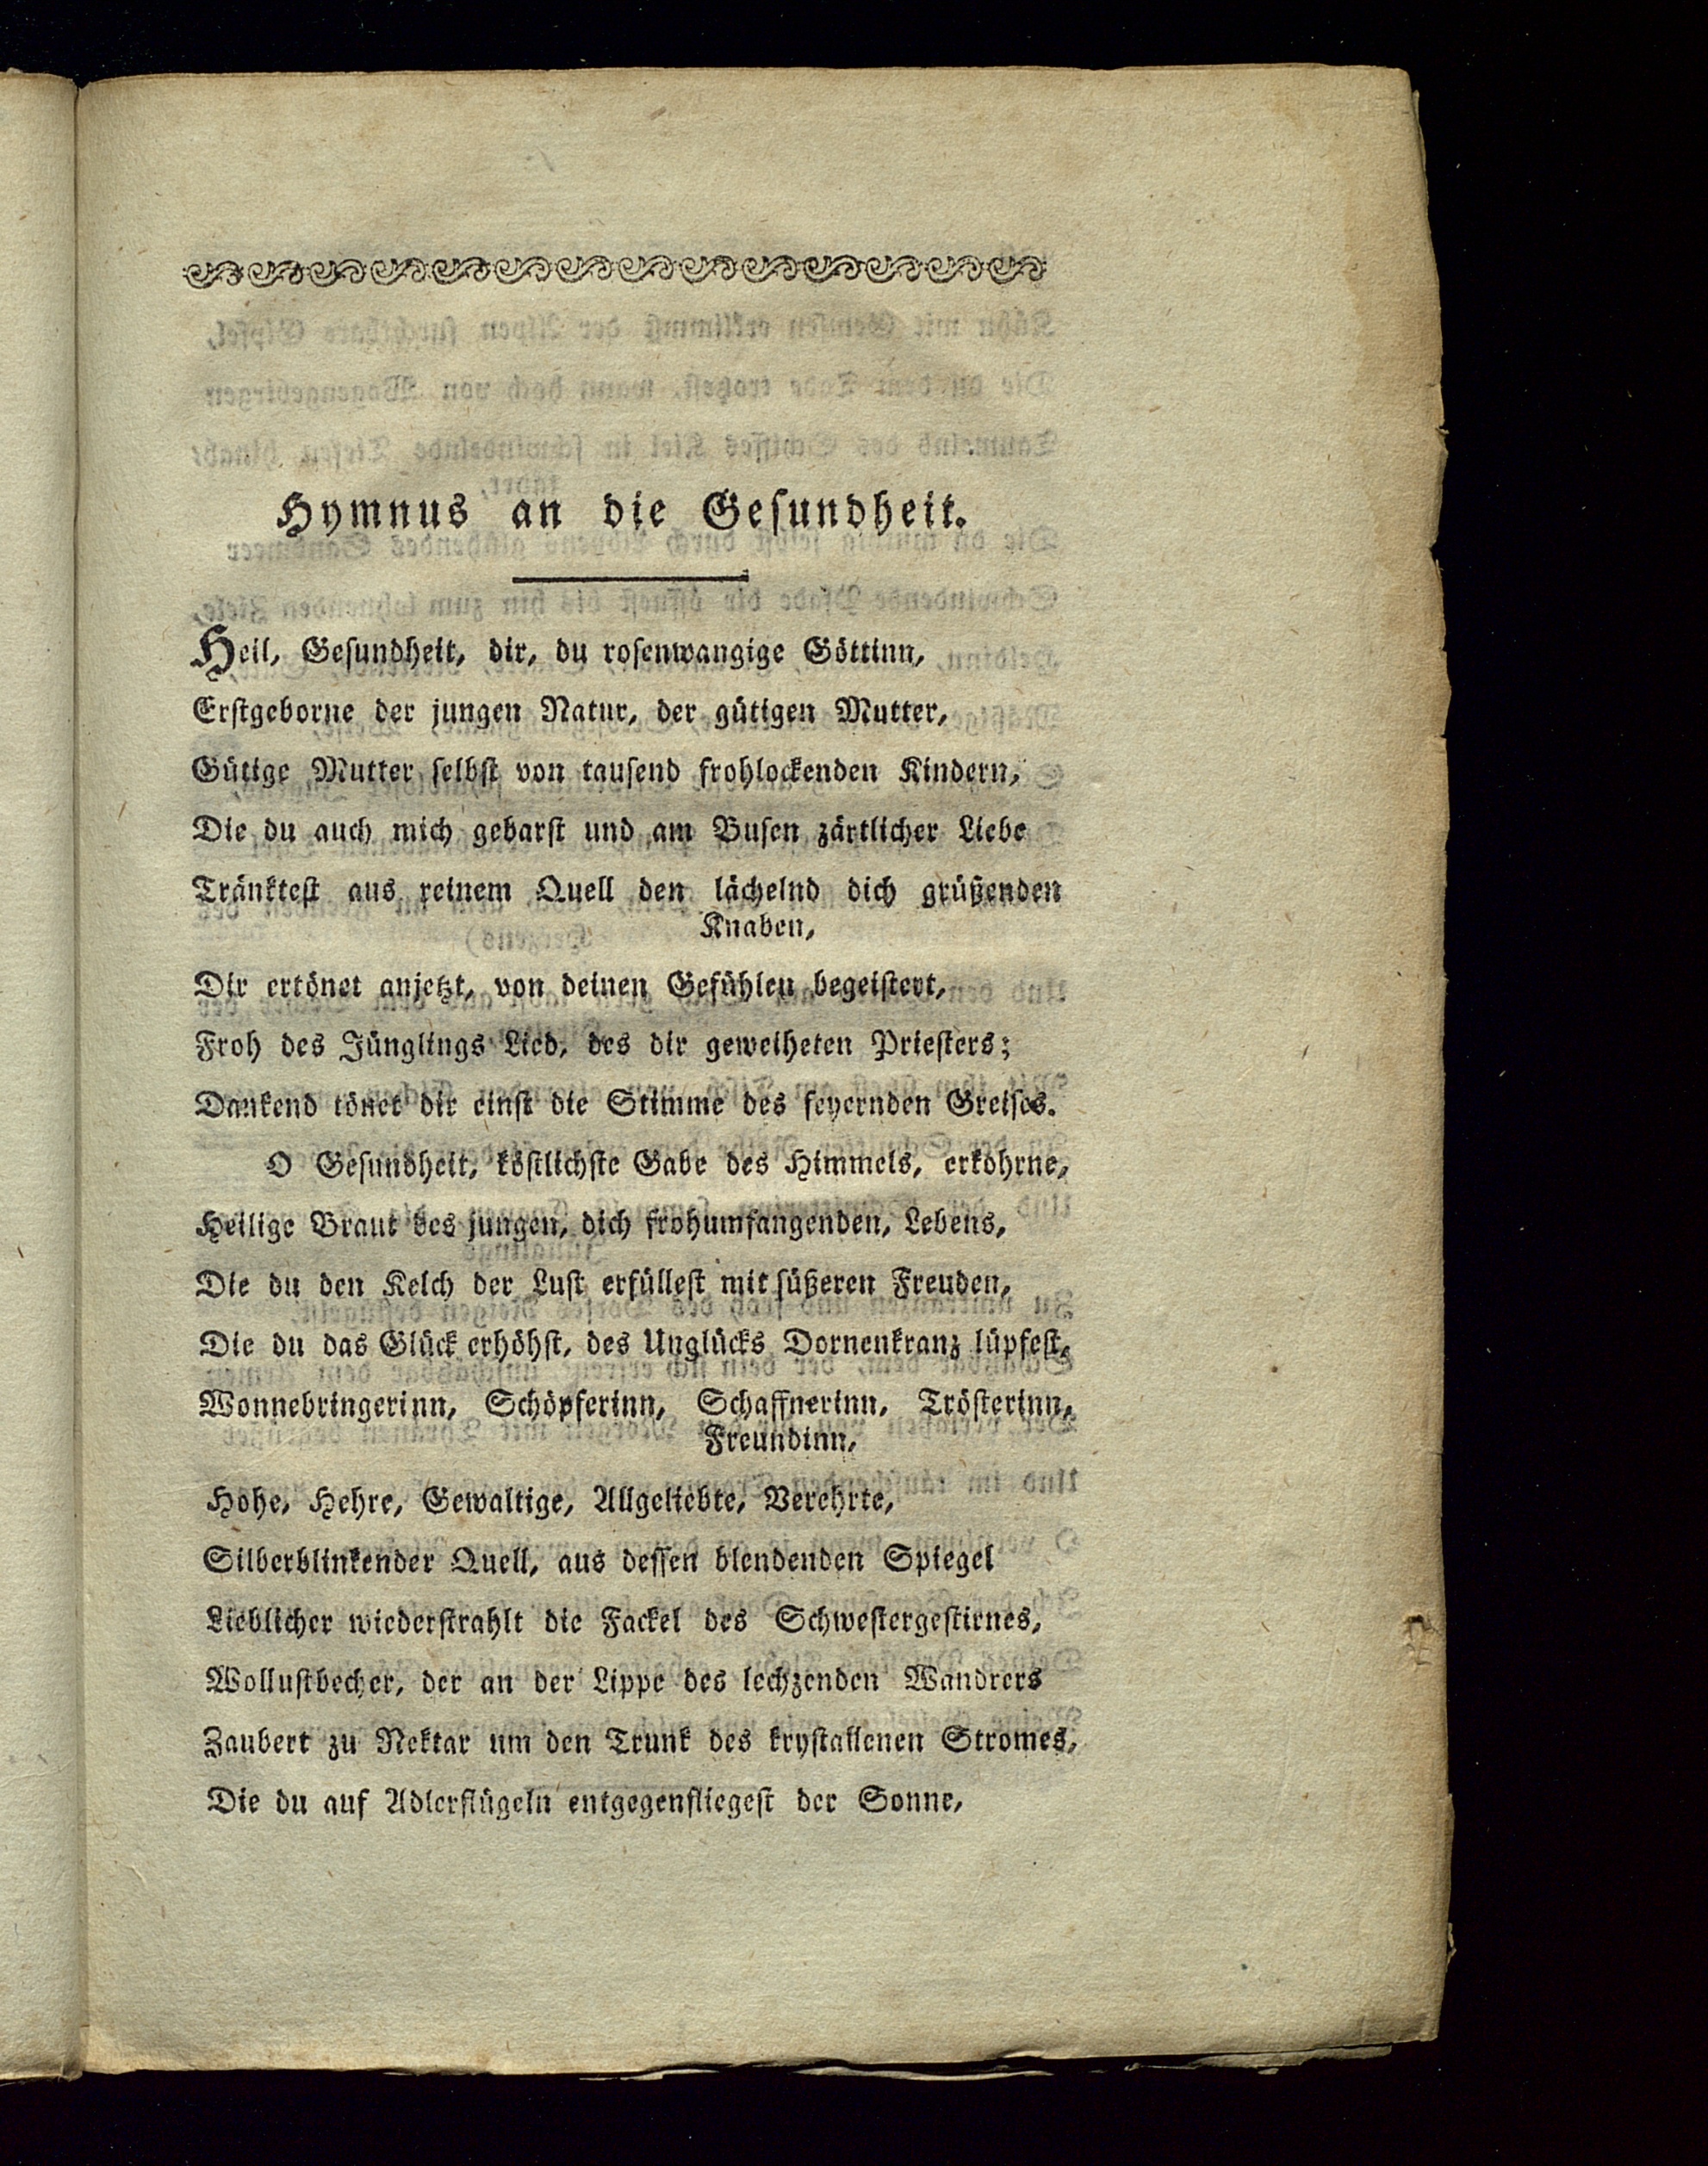 Hymnus an die Gesundheit.
Heil, Gesundheit, dir, du rosenwangige Göttinn,
Erstgeborne der jungen Natur, der gütigen Mutter,
Gütige Mutter selbst von tausend frohlockenden Kindern,
Die du auch mich gebarst und am Busen zärtlicher Liebe
Tränktest aus reinem Quell den lächelnd dich grüßenden
Knaben,
Dir ertönet anjetzt, von deinen Gefühlen begeistert,
Froh des Jünglings Lied, des dir geweiheten Priesters;
Dankend tönet dir einst die Stimme des feyernden Greises.
O Gesundheit, köstlichste Gabe des Himmels, erkohrne,
Heilige Braut des jungen, dich frohumfangenden, Lebens,
Die du den Kelch der Lust erfüllest mit süßeren Freuden,
Die du das Glück erhöhst, des Unglücks Dornenkranz lüpfest,
Wonnebringerinn, Schöpferinn, Schaffnerinn, Trösterinn,
Freundinn,
Hohe, Hehre, Gewaltige, Allgeliebte, Verehrte,
Silberblinkender Quell, aus dessen blendenden Spiegel
Lieblicher wiederstrahlt die Fackel des Schwestergestirnes,
Wollustbecher, der an der Lippe des lechzenden Wandrers
Zaubert zu Nektar um den Trunk des krystallenen Stromes,
Die du auf Adlerflügeln entgegenfliegest der Sonne,